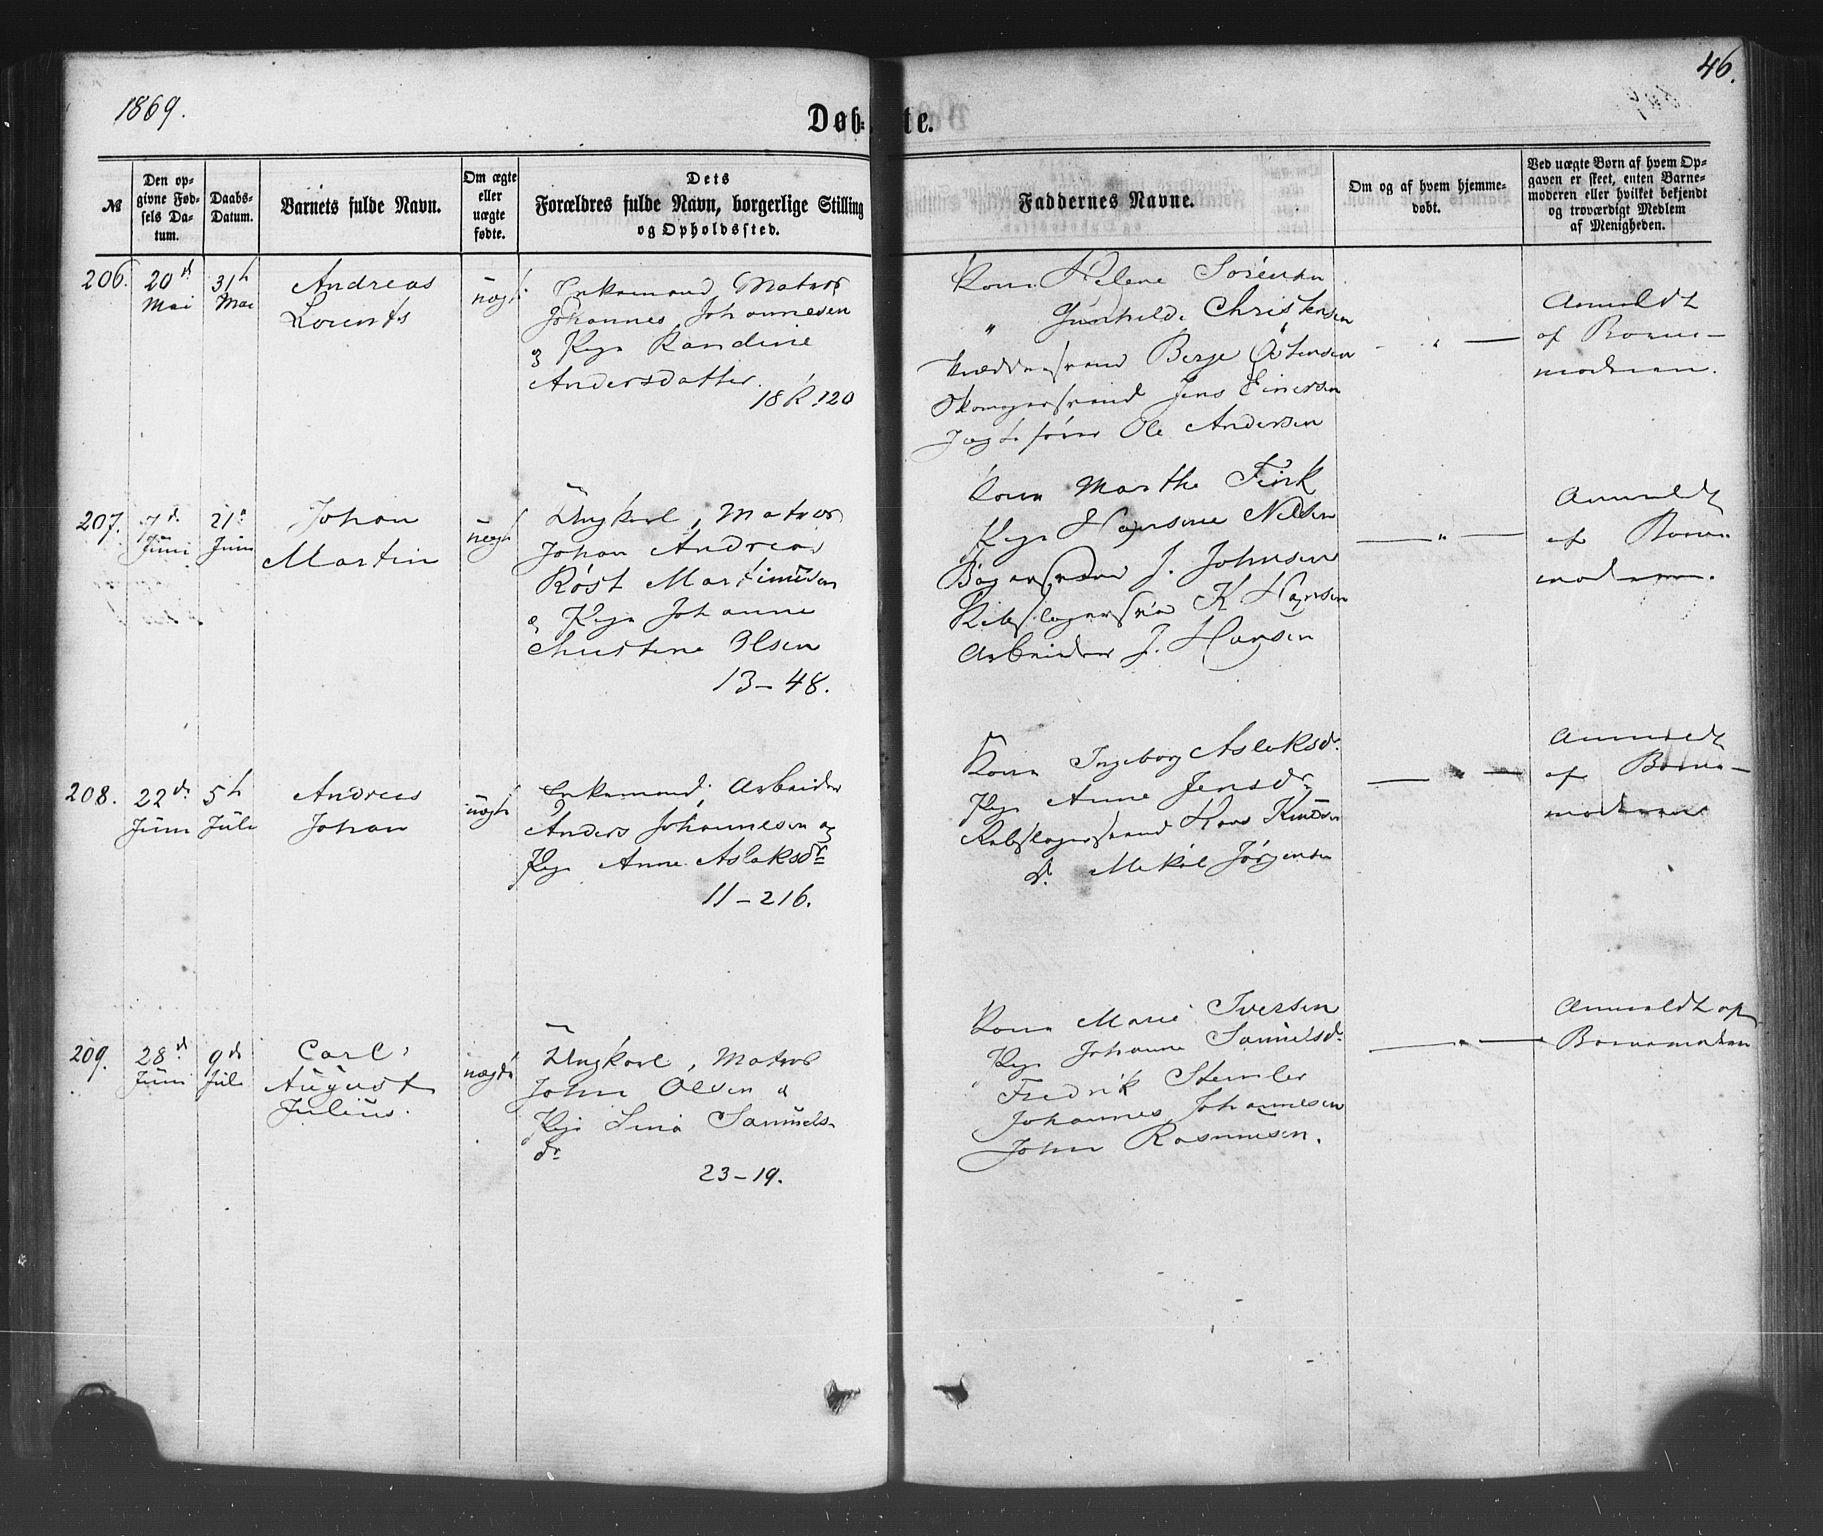 1869.
46.
Døb-te.
№
Den op-
givne Fød-
sels Da-
tum.
Daabs-
Datum.
Barnets fulde Navn.
Om ægte
eller
uægte
fødte.
Dets
Forældres fulde Navn, borgerlige Stilling
og Opholdssted.
Faddernes Navne.
Om og af hvem hjemme-
døbt.
Ved uægte Børn af hvem Op-
gaven er skeet, enten Barne-
moderen eller hvilket bekjendt
og troværdigt Medlem
af Menigheden.
206.
20d
Mai
31t
Mai
Andreas
Lorents
uægt
Enkemand, Matros
Johannes Johannesen
og Pige Randine
Andersdatter.
18 R. 120
Kone Helene Sørensen
" Gunhilde Christensen
Berje Østensen
Skomagersvend Jens Einersen
Jægtefører Ole Andersen
Anmeldt
af Barne-
moderen.
207.
7d
Juni
21d
Juni
Johan
Martin
uægt
Ungkarl, Matros
Johan Andreas
Røst Martinusen
og Pige Johanne
Christine Olsen
13-48.
Kone Marthe Fink
Pige Hansine Nilsen
Bagersvend J. Johnsen
Rebslagersvd K Hansen
Arbeider J. Hansen
Anmeldt
af Barne
moderen.
208.
22d
Juni
5t
Juli
Andreas
Johan
uægt
Enkemand. Arbeider
Anders Johannesen og
Pige Anne Aslaksdr
11-216.
Kone Ingeborg Aslaksdr.
Pige Anne Jensdr
Rebslagersvend Hans Knudsen
d. Mekal Jørgensen
Anmeldt
af Barne-
moderen
209.
28d
Juni
9d
Juli
Carl
August
Julius.
uægte
Ungkarl, Matros
John Olsen og
Pige Lina Samuels-
dr
23-19.
Kone Marie Iversen
Pige Johanne Samuelsdr.
Fredrik Stemler
Johannes Johannesen
John Rasmusen.
Anmeldt af
Barnemoderen